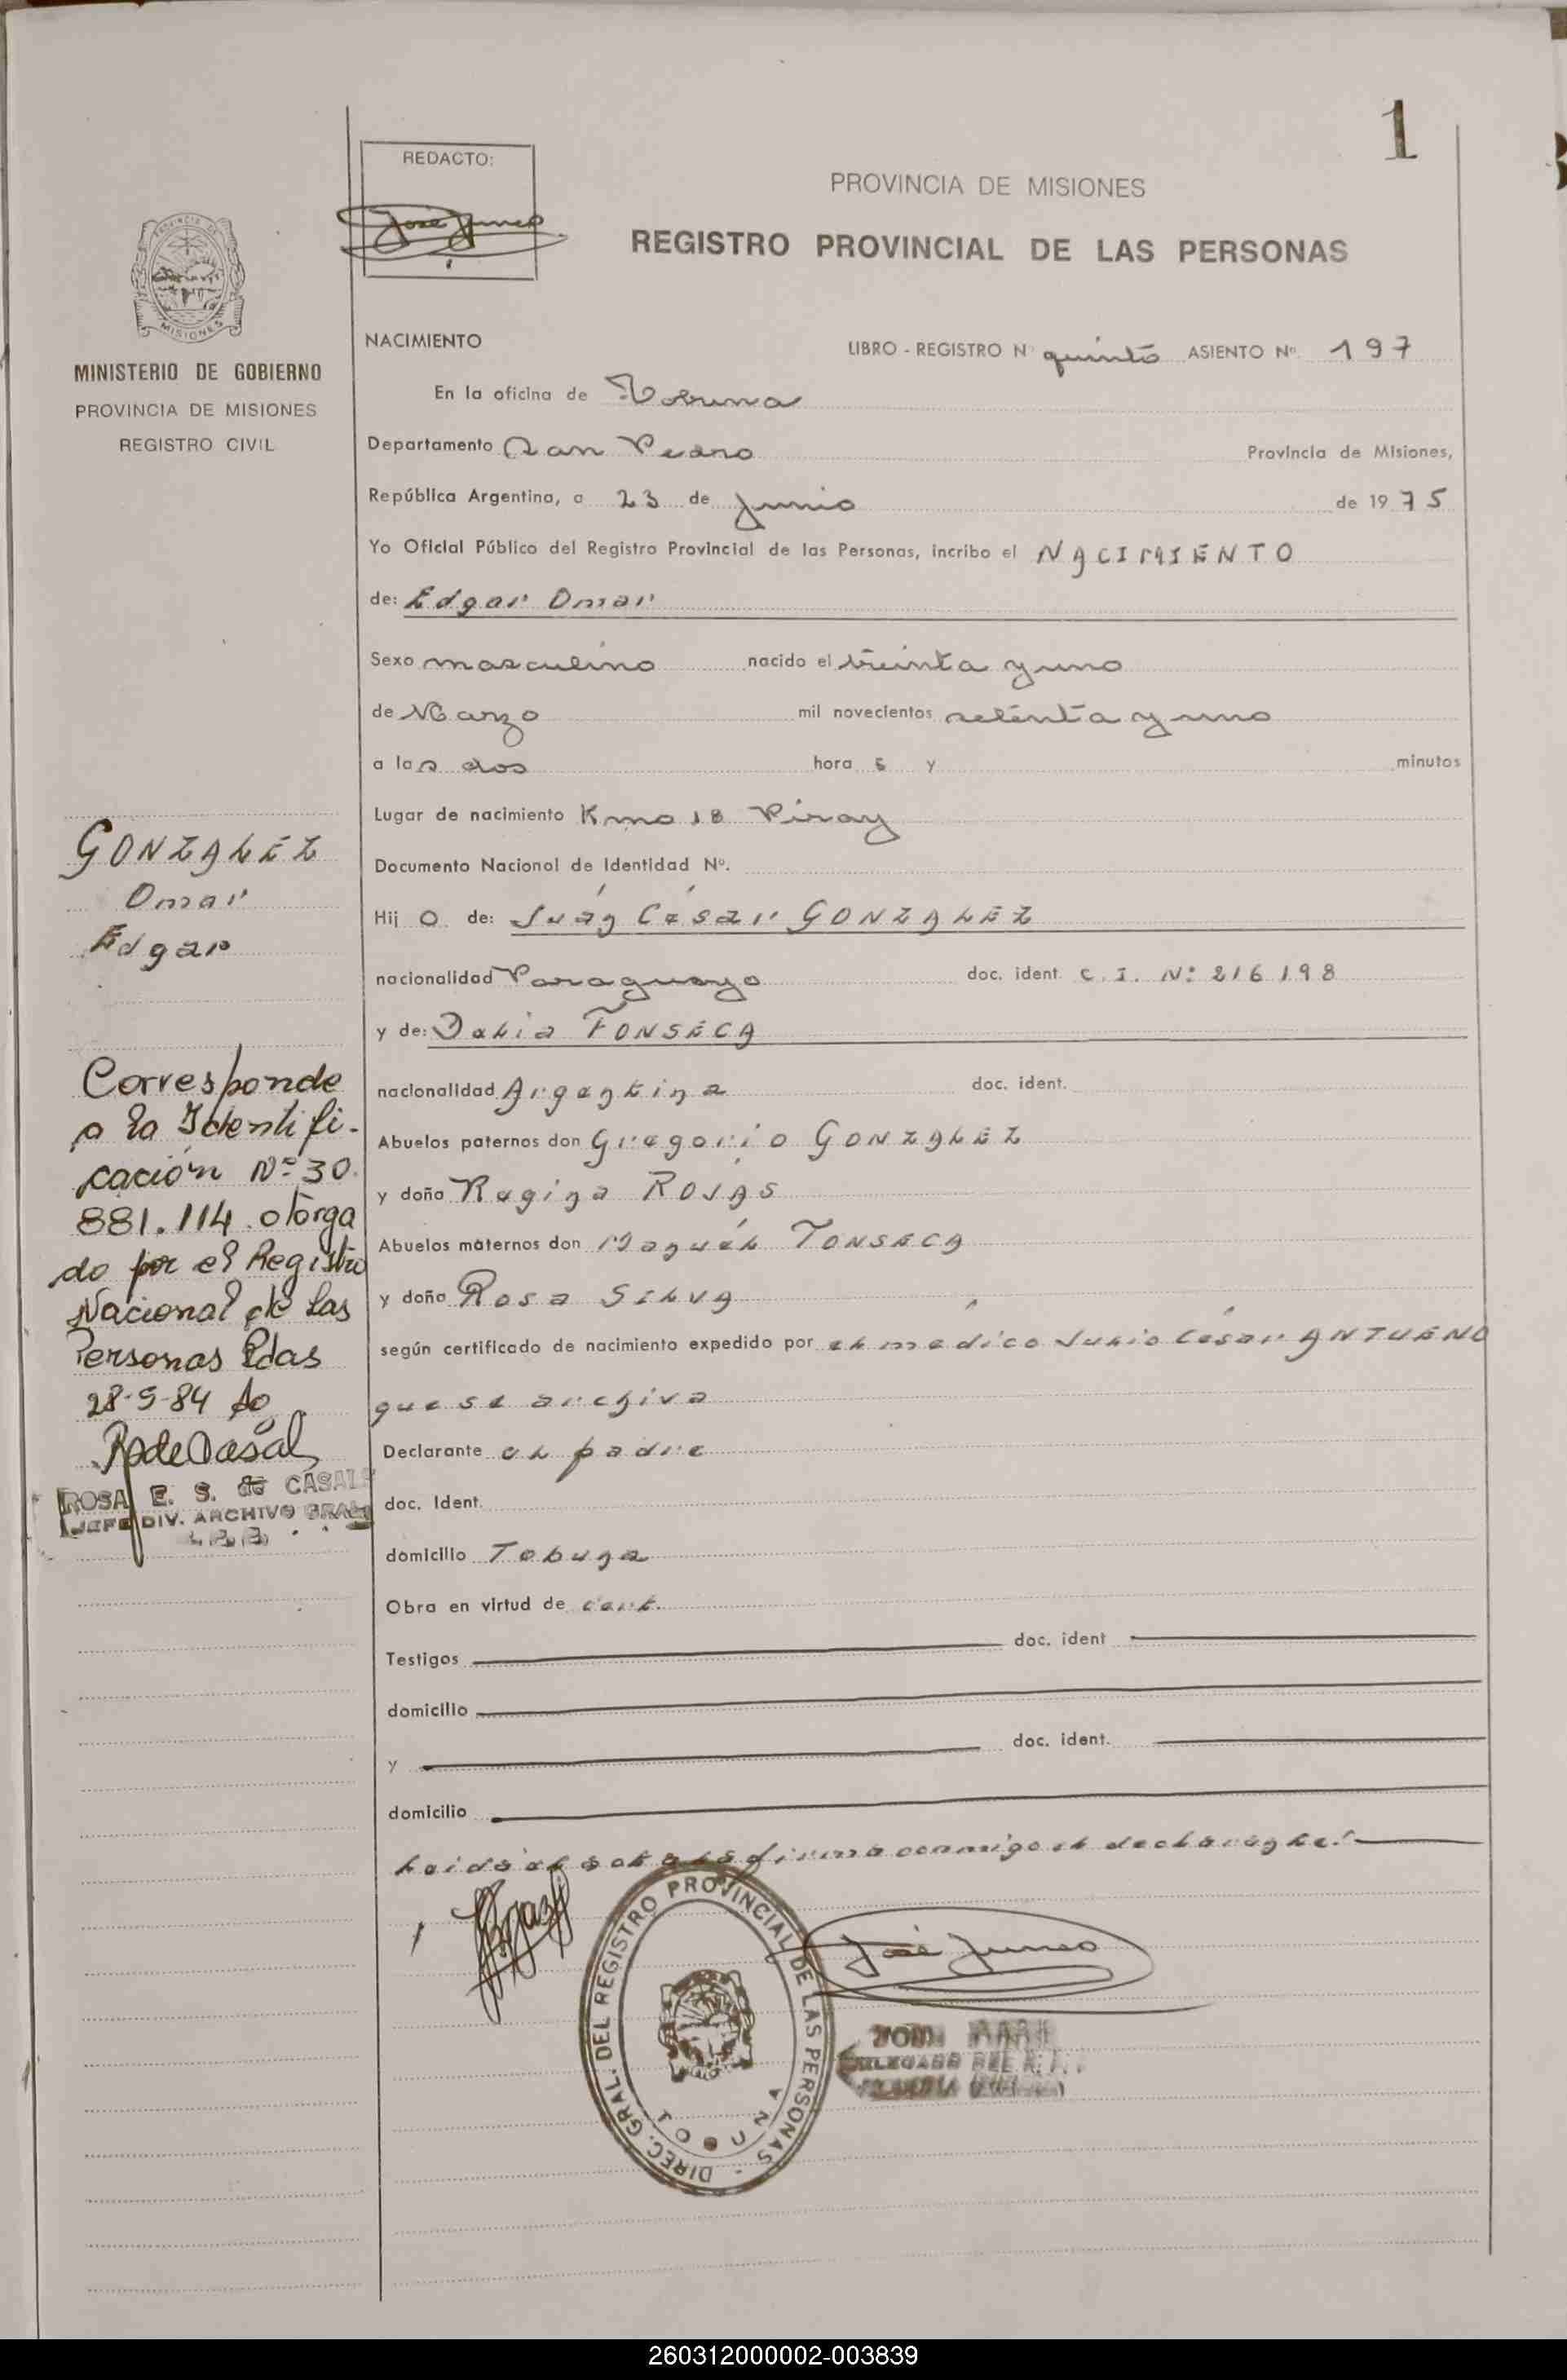 1
REDACTO:
José Junco
PROVINCIA DE MISIONES
REGISTRO PROVINCIAL DE LAS PERSONAS
PROVINCIA DE
MISIONES
MINISTERIO DE GOBIERNO
PROVINCIA DE MISIONES
REGISTRO CIVIL
NACIMIENTO
LIBRO - REGISTRO N° quinto ASIENTO N° 197
En la oficina de Tobuna
Departamento San Pedro Provincia de Misiones,
República Argentina, a 23 de Junio de 1975
Yo Oficial Público del Registro Provincial de las Personas, incribo el NACIMIENTO
de: Edgar Omar
Sexo masculino nacido el treinta y uno
de Marzo mil novecientos setenta y uno
a las dos hora s y minutos
Lugar de nacimiento Kmo 18 Piray
Documento Nacional de Identidad N°.
Hij o de: Juan César GONZALEZ
nacionalidad Paraguayo doc. ident. C. I. N° 216198
y de: Dalia FONSECA
nacionalidad Argentina doc. ident.
Abuelos paternos don Gregorio GONZALEZ
y doña Regina ROJAS
Abuelos maternos don Manuel FONSECA
y doña Rosa SILVA
según certificado de nacimiento expedido por el medico Julio César
que se archiva
Declarante el padre
doc. Ident.
domicilio Tobuna
Obra en virtud de cert.
Testigos doc. ident
domicilio
y doc. ident.
domicilio
Leida el acta la firma conmigo el declarante.
José Junco
DIREC. GRAL. DEL REGISTRO PROVINCIAL DE LAS PERSONAS
TOBUNA
GONZALEZ
Omar
Edgar
Corresponde
a la Identifi-
cación N° 30.
881.114 otorga
do por el Registro
Nacional de las
Personas Pdas
28-5-84
R de Casal
ROSA E. S. de CASALS
JEFE DIV. ARCHIVO GRAL
260312000002-003839